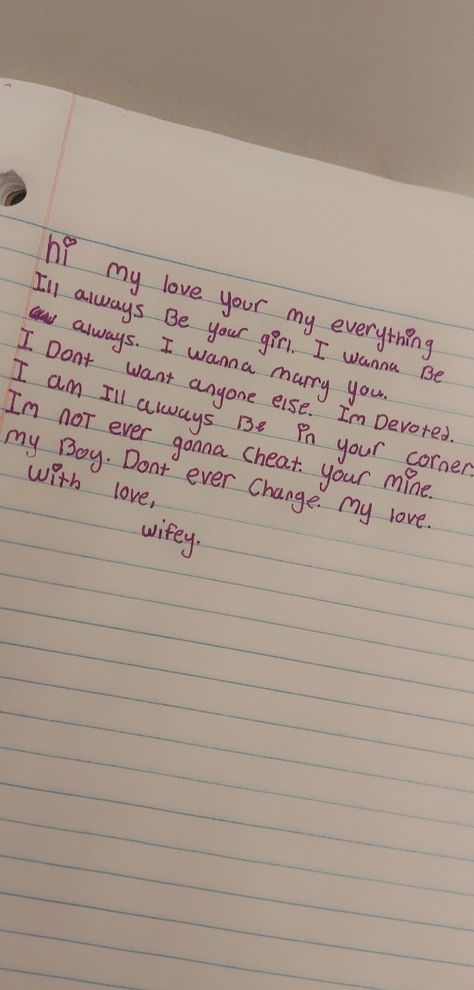 hi my love your my everything
Ill always Be your girl. I wanna Be
always. I wanna marry you.
I Dont want anyone else. Im Devoted.
I am Ill always Be in your corner.
Im not ever gonna cheat. your mine.
my Boy. Dont ever change. my love.
with love,
wifey.